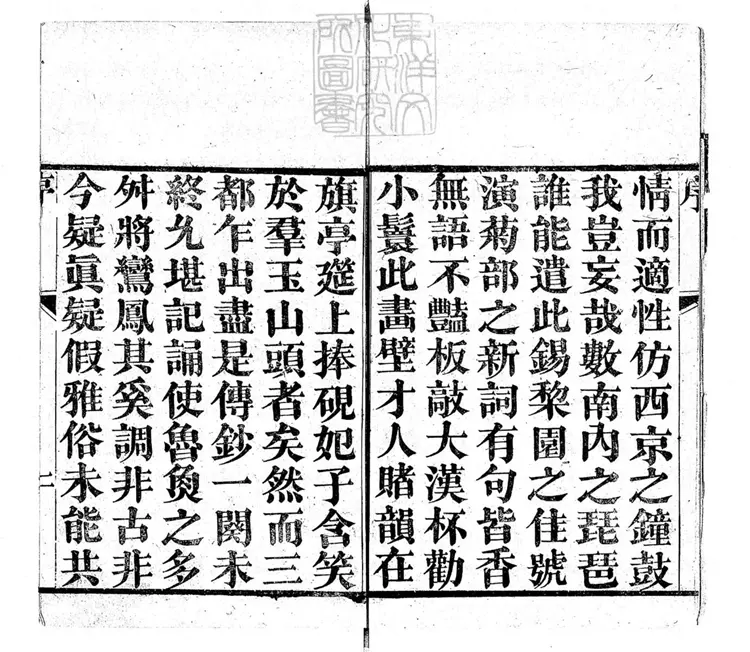 東洋文
化研究
所圖書
序
情而適性仿西京之鐘鼓
我豈妄哉數南內之琵琶
誰能遣此錫棃園之佳號
演菊部之新詞有句皆香
無語不豔板敲大漢杯勸
小鬟此畫壁才人賭韻在
旗亭筵上捧硯妃子含笑
於羣玉山頭者矣然而三
都乍出盡是傳鈔一闋未
終尢堪記誦使魯魚之多
舛將鸞鳳其奚調非古非
今疑眞疑假雅俗未能共
序
二